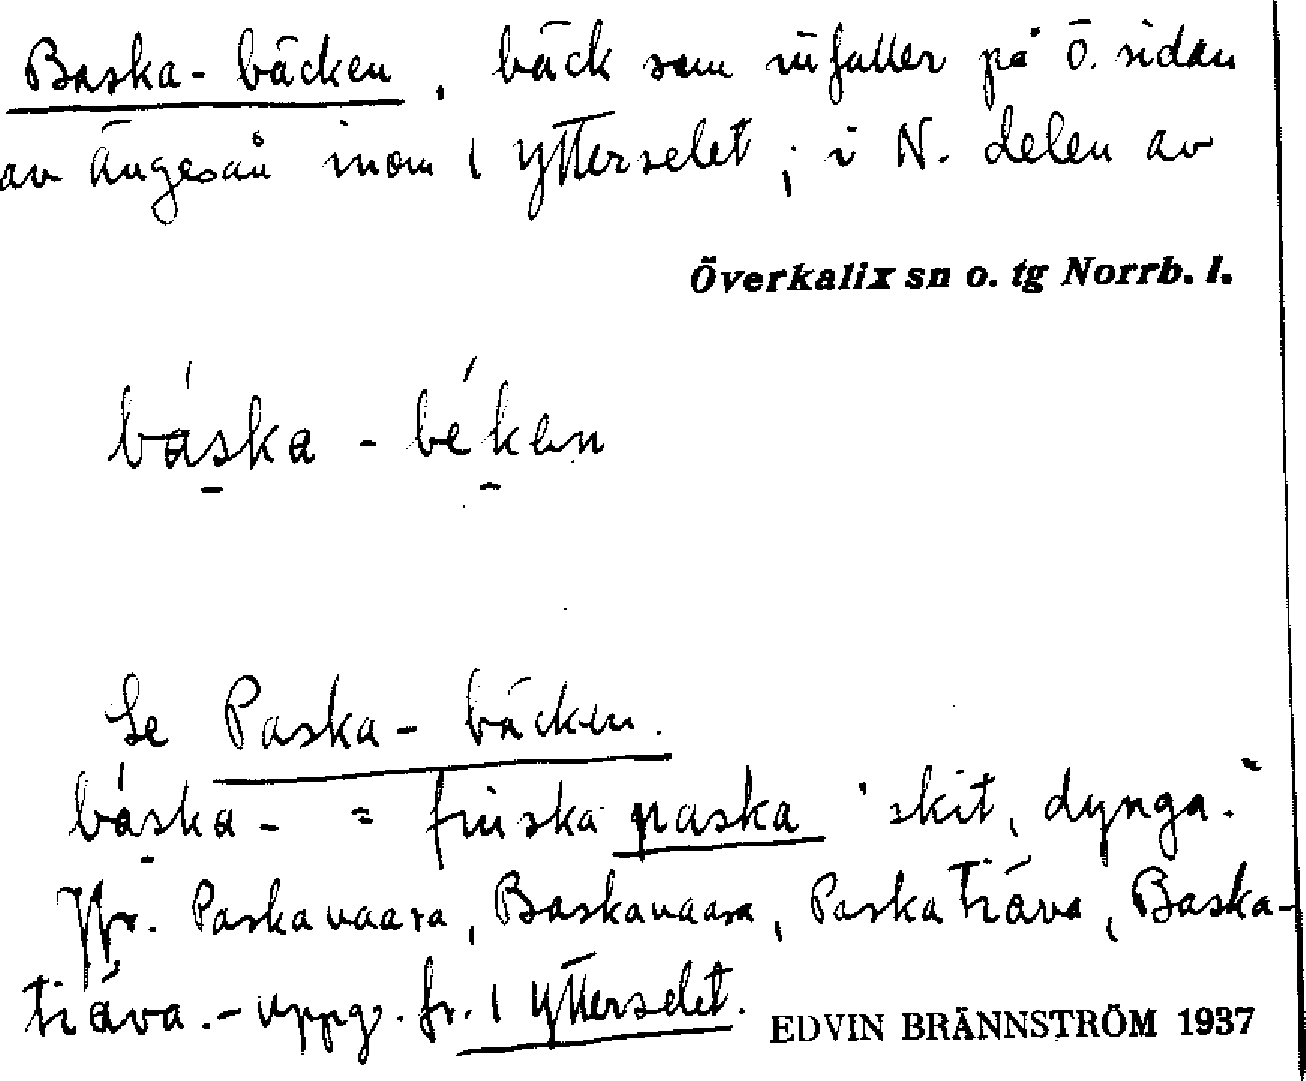 Baska-bäcken, bäck som infaller på ö. sidan
av Ängesån inom 1 Ytterselet; i N. delen av
Överkalix sn o. tg Norrb. l.
báska - béken
Se Paska-bäcken.
báska- = finska paska 'skit, dynga."
Jfr. Paskavaara, Baskavaara, Paska tiáva, Baska-
tiáva. - Uppg. fr. 1 Ytterselet.
EDVIN BRÄNNSTRÖM 1937